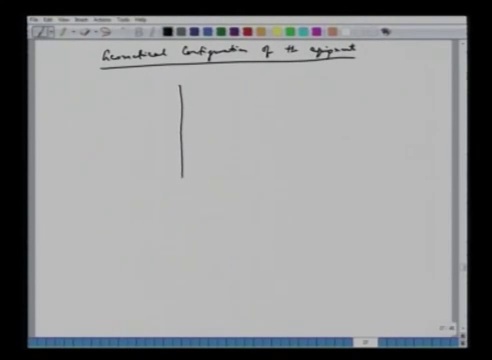 File Edit View Insert Actions Tools Help
Geometrical Configuration of th equipment